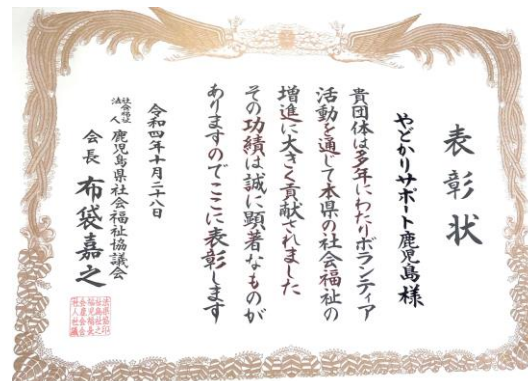 表彰状
やどかりサポート鹿児島様
貴団体は多年にわたりボランティア
活動を通じて本県の社会福祉の
増進に大きく貢献されました
その功績は誠に顕著なものが
ありますのでここに表彰します
令和四年十月二八日
社会福祉法人 鹿児島県社会福祉協議会
会長 布袋嘉之